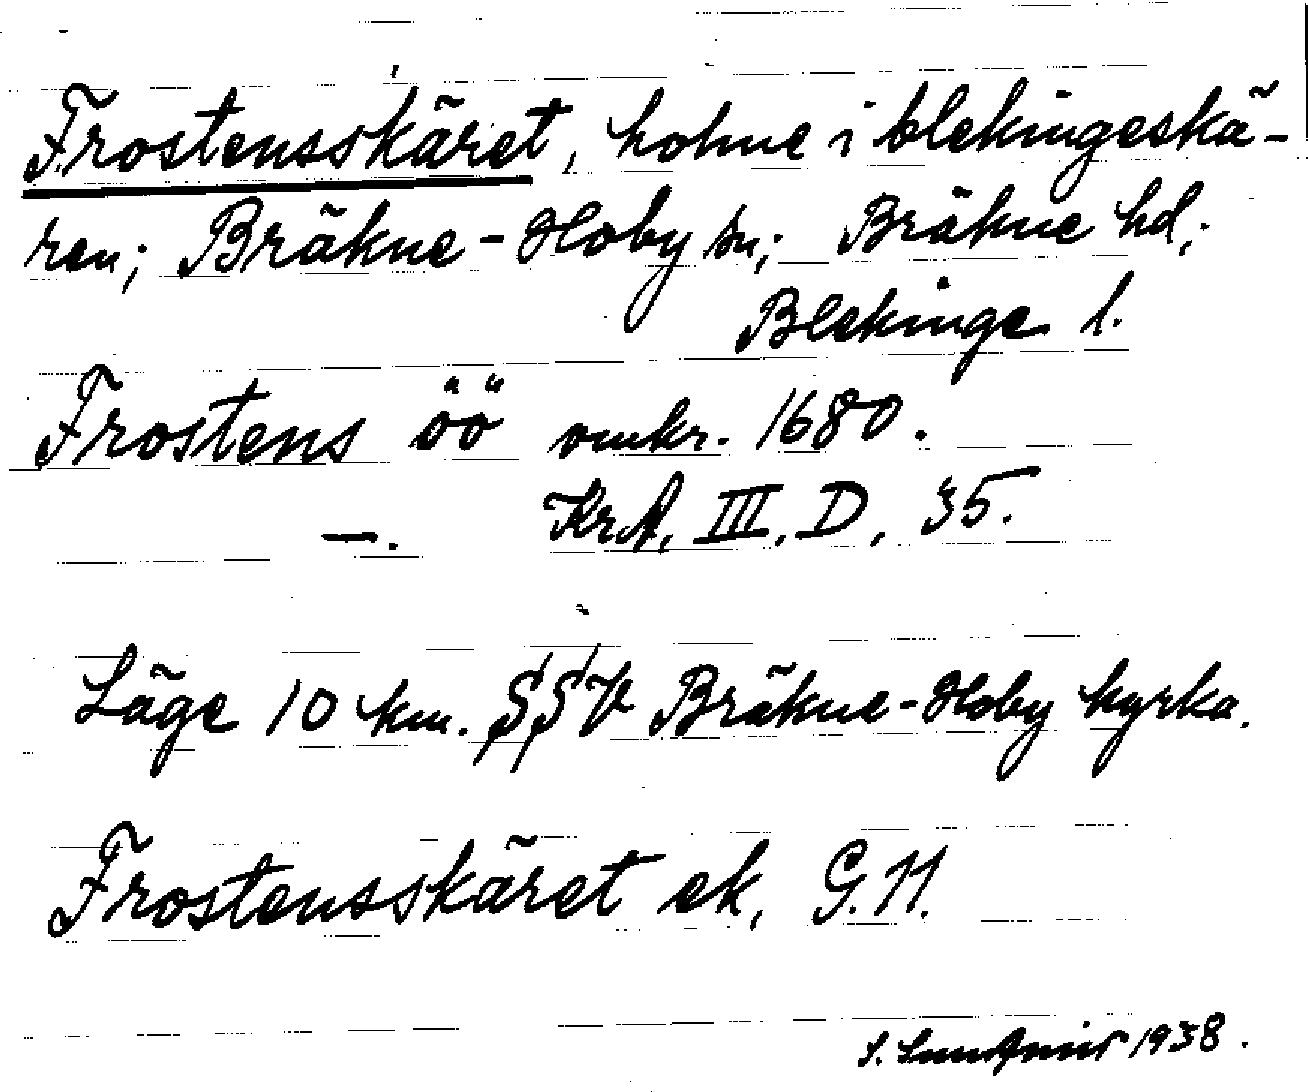 Frostensskäret, holme i blekingeskä-
ren; Bräkne-Hoby sn; Bräkne hd;
Blekinge l.
Frostens öö omkr. 1680.
—. KrA, III. D, 35.
Läge 10 km. SSV Bräkne-Hoby kyrka.
Frostensskäret ek, G.11.
S. 1938.